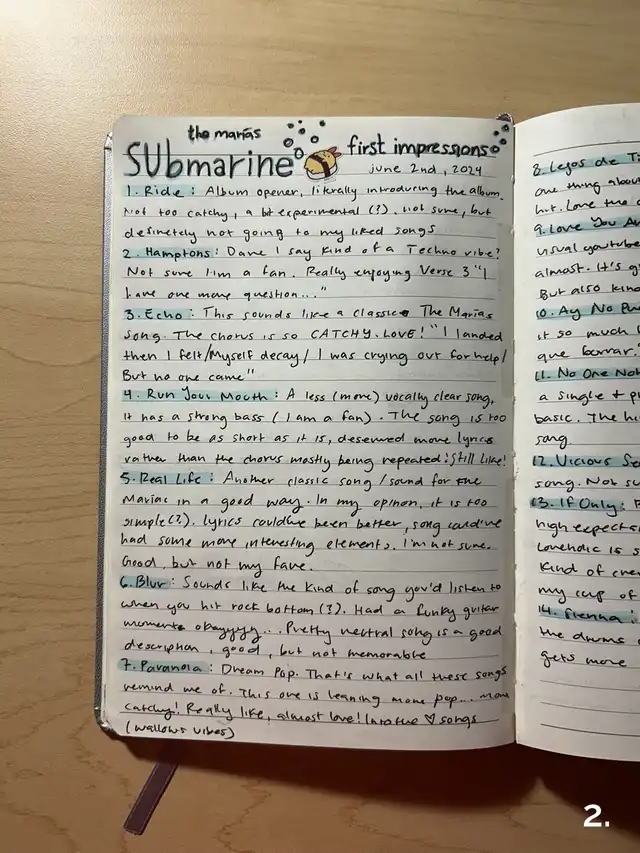 the marías
SUbmarine
first impressions
june 2nd, 2024
1. Ride: Album opener, literally introducing the album.
Not too catchy, a bit experimental (?). not sure, but
desinetely not going to my liked songs
2. Hamptons: Dare I say kind of a Techno vibe?
Not sure I'm a fan. Really enjoying Verse 3 "I
have one more question..."
3. Echo: This sounds like a classic The Marías
song. The chorus is so CATCHY. LOVE! "I landed
then I felt/Myself decay/ I was crying out for help/
But no one came"
4. Run Your Mouth: A less (more) vocally clear song,
it has a strong bass (I am a fan). The song is too
good to be as short as it is, deserved more lyrics
rather than the chorus mostly being repeated. Still like!
5. Real Life: Another classic song / sound for the
Marías in a good way. In my opinion, it is too
simple(?). Lyrics could've been better, song could've
had some more interesting elements. I'm not sure.
Good, but not my fave.
6. Blur: Sounds like the kind of song you'd listen to
when you hit rock bottom (?). Had a funky guitar
moment okayyyy... Pretty neutral song is a good
description, good, but not memorable
7. Paranoia: Dream Pop. That's what all these songs
remind me of. This one is leaning more pop... more
catchy! Really like, almost love! Into the ♡ songs
(wallows vibes)
8. Lejos de T
one thing abou
hit. Love the
9. Love You An
usual youtube
almost. It's
But also kind
10. Ay No Pu
it so much
que borrar?
11. No One Not
a single + p
basic. The h
song.
12. Vicious Se
song. Not su
13. If Only:
high expect
Loveholic is s
kind of cre
my cup of
14. Sienna:
the drums
gets more
2.